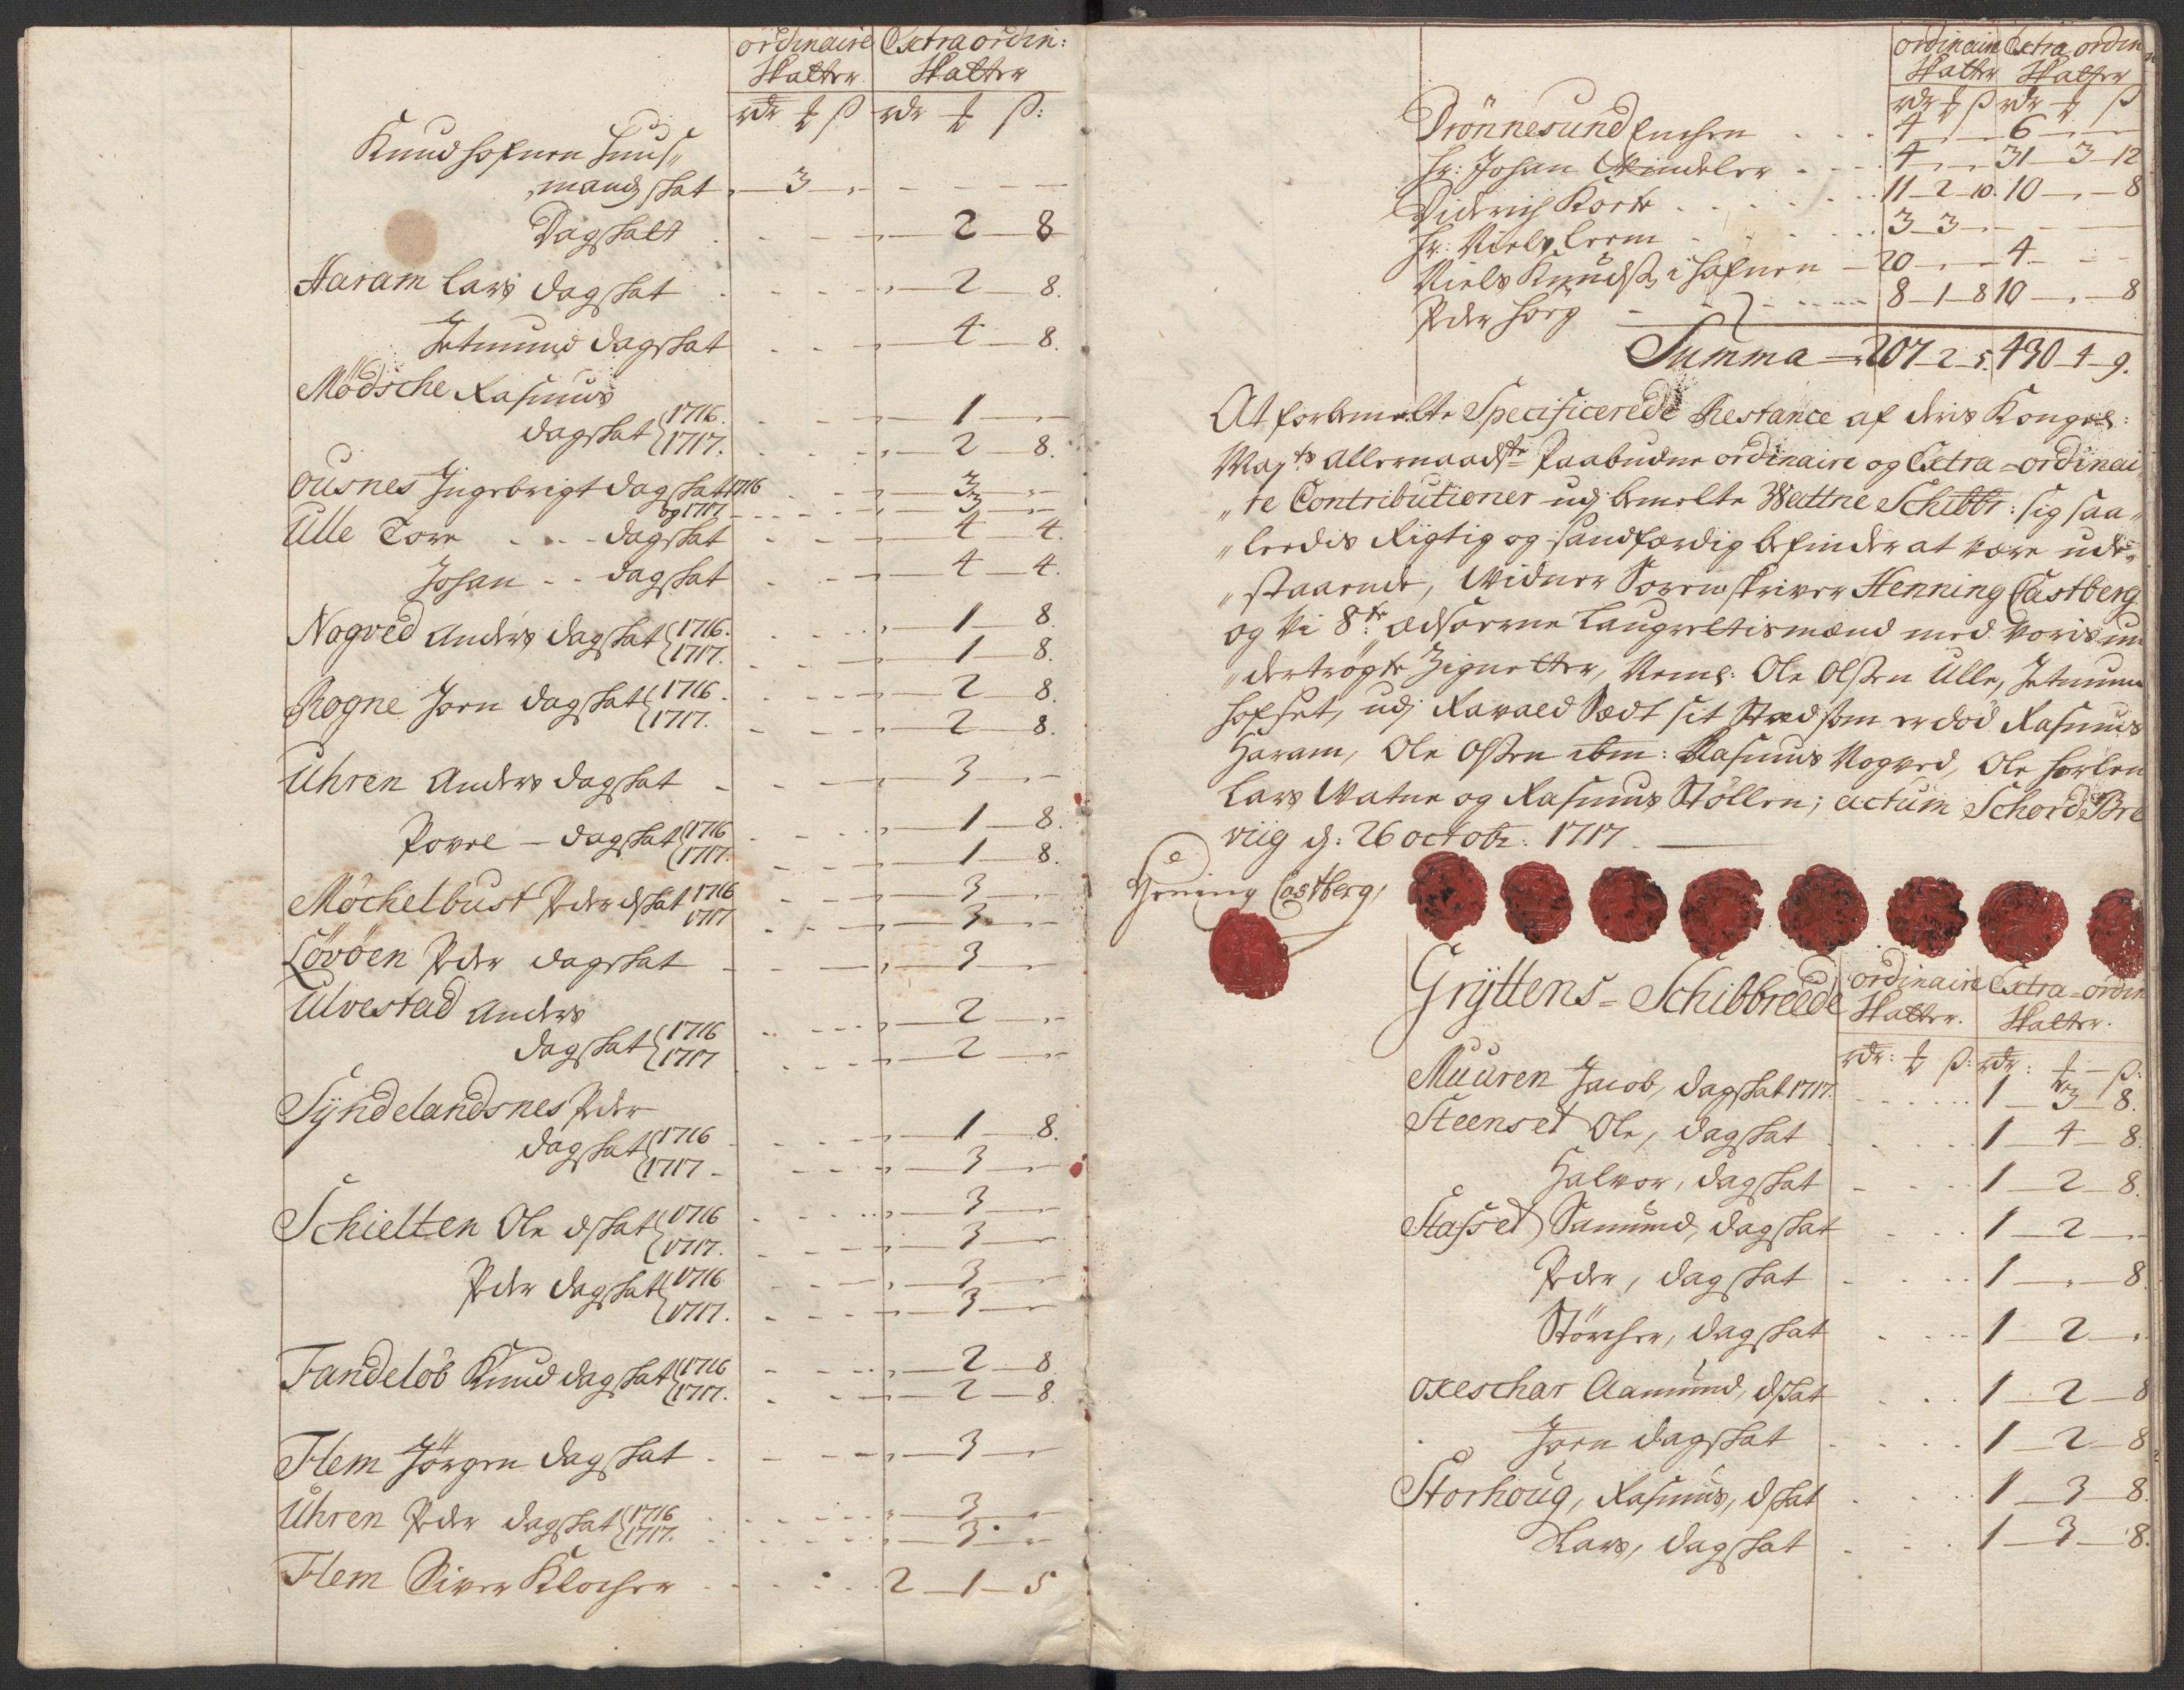 ordinaire Extraordin:
Skatter Skatter
rdr ₻ ß rdr ₻ ß:
Knud hofnen huus„
„mandskat „ 3 „
Dagskatt „ 2 8
Haram Lars dagskat „ 2 8.
Jetmund dagskat „ 4 8.
Mödsche Rasmus
dagskat 1716. „ 1 „
1717. „ 2 8.
Ousnes Ingebrigt dagskat 1716 „ 3 „
og 1717 „ 3 „
Ulle Tore dagskat „ 4 4.
Johan dagskat „ 4 4.
Nogved Anders dagskat 1716. „ 1 8.
1717. „ 1 8.
Rogne Joen dagskat 1716. „ 2 8.
1717. „ 2 8.
Uhren Anders dagskat „ 3 „
Povel dagskat 1716 „ 1 8.
1717. „ 1 8.
Möchelbust Peder dskat 1716 „ 3 „
1717 „ 3 „
Lövöen Peder dagskat „ 3 „
Ulvestad Anders
dagskat 1716 „ 2 „
1717 „ 2 „
Syndelandsnes Peder
dagskat 1716 „ 1 8.
1717 „ 3 „
Schielten Ole dskat 1716 „ 3 „
1717. „ 3 „
Peder dagskat 1716 „ 3 „
1717. „ 3 „
Fandelöb Knud dagskat 1716 „ 2 8.
1717. „ 2 8.
Flem Jörgen dagskat „ 3 „
Uhren Peder dagskat 1716 „ 3 „
1717. „ 3 „
Flem Siver Klocher 2 1 5
ordinaire Extraordin
Skatter Skatter
rdr ₻ ß rdr ₻ ß
Drönnesund Enchen 4 „ „ 6 „ „
Hr: Johan Windeler 4 „ „ 31 3 12
Diderich Korte 11 2 10. 10 „ 8
Hr: Niels Leem 3 3 „
Niels Knudsen i hafnen 20 „ „ 4 „
Peder hörg 8 1 8 10 „ 8
Summa 207 2 5. 430 4 9.
At forbemelte Specificerede Restance af deris Kongel:
May:ts Allernaadste Paabudne ordinaire og Extra-ordinai
„re Contributioner udj bemelte Wattne Schibbr: sig saa„
„leedis Rigtig og sandfærdig befinder at være ude„
„staaende, Widner Sorenskriver Henning Castberg
og Vi 8te Edsoerne Laugrettismænd med Voris un
„dertrögte Zignetter, Neml: Ole Olsen Ulle, Jetmund
hofset, udj Ravald Sædt sit Sted som er död Rasmus
Haram, Ole Olsen ibm: Rasmus Nogved, Ole
Lars Watne og Rasmus Stöllen; actum Schord: Bre
viig d: 26 octobr: 1717.
Henning Castberg
Gryttens-Schibbreede ordinaire Extra-ordin
Skatter. Skatter.
rdr: ₻ ß: rdr: ₻ ß:
Muuren Jacob, dagskat 1717. 1 3 8.
Steenset Ole, dagskat 1 4 8.
Halvor, dagskat 1 2 8.
Stasset Samund, dagskat 1 2 „
Peder, dagskat 1 „ 8.
Störcher, dagskat 1 2 „
Oxeschar Aamund, dskat 1 2 8
Joen dagskat 1 2 8
Storhoug, Rasmus, dskat 1 3 8.
Lars, dagskat 1 3 8.